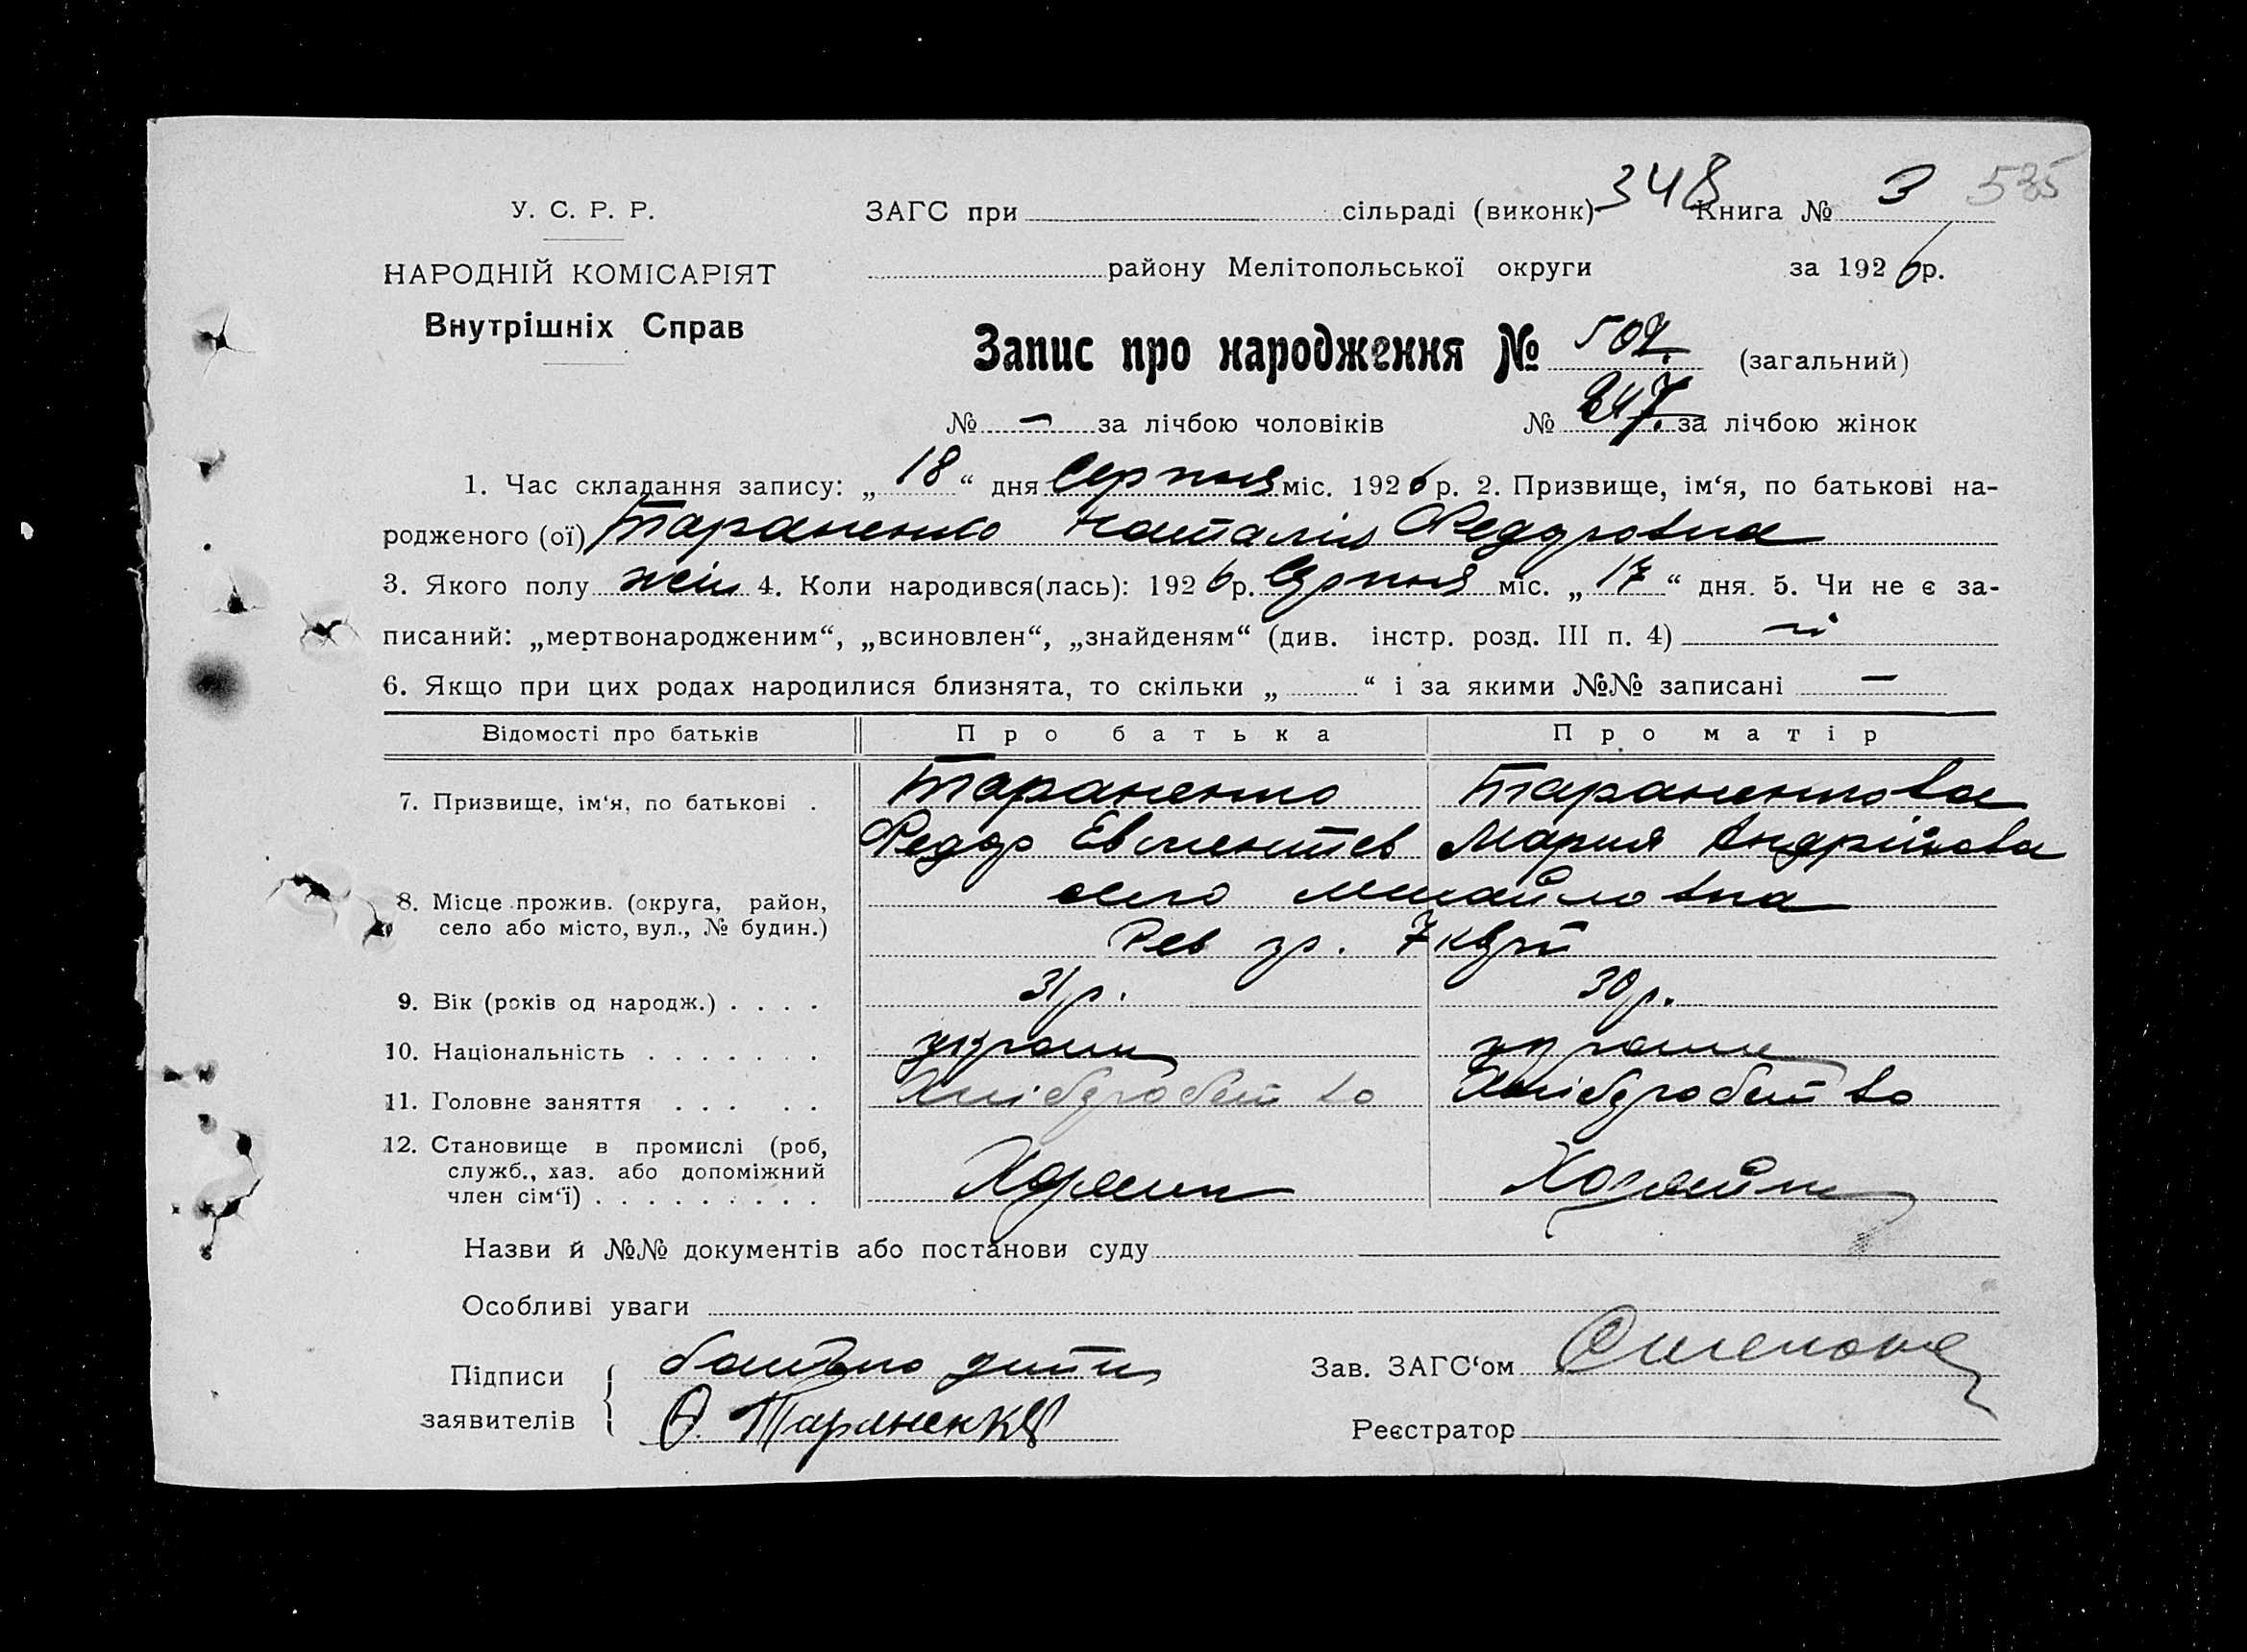 348 535
У. С. Р. Р. ЗАГС при сільраді (виконк) Книга № 3
НАРОДНІЙ КОМІСАРІЯТ району Мелітопольської округи за 1926 р.
Внутрішніх Справ
Запис про народження № 502. (загальний)
№ — за лічбою чоловіків № 247. за лічбою жінок
1. Час складання запису: „18“ дня Серпня міс. 1926 р. 2. Призвище, ім‘я, по батькові на-
родженого (ої) Тараненко Наталія Федоровна
3. Якого полу жін 4. Коли народився(лась): 1926 р. Серпня міс. „17“ дня. 5. Чи не є за-
писаний: „мертвонародженим“, „всиновлен“, „знайденям“ (див. інстр. розд. III п. 4) ні
6. Якщо при цих родах народилися близнята, то скільки „ “ і за якими №№ записані —
Відомості про батьків Про батька Про матір
7. Призвище, ім‘я, по батькові . Тараненко Тараненкова
Федор Евментев Мария Андрійовна
8. Місце прожив. (округа, район, село Михайловка
село або місто, вул., № будин.) Рев 7
9. Вік (років од народж.) . . . . 31 р. 30 р.
10. Національність . . . . . . . украин украин
11. Головне заняття . . . . . Хліборобство Хліборобство
12. Становище в промислі (роб,
служб., хаз. або допоміжний
член сім‘ї) . . . . . . . . . Хозяин Хозяйка
Назви й №№ документів або постанови суду
Особливі уваги
Підписи батько дити Зав. ЗАГС‘ом
заявителів Ф. Тараненко Реєстратор